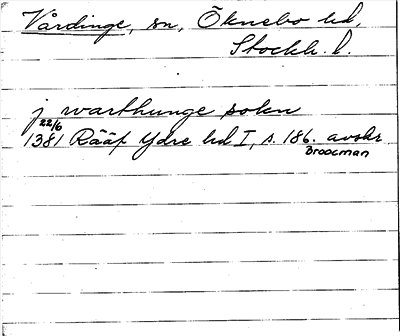 Vårdinge, sn, Öknebo hd,
Stockh. l.
j warthunge sokn
22/6
1381 Rääf Ydre hd I, s. 186. avskr
Broocman